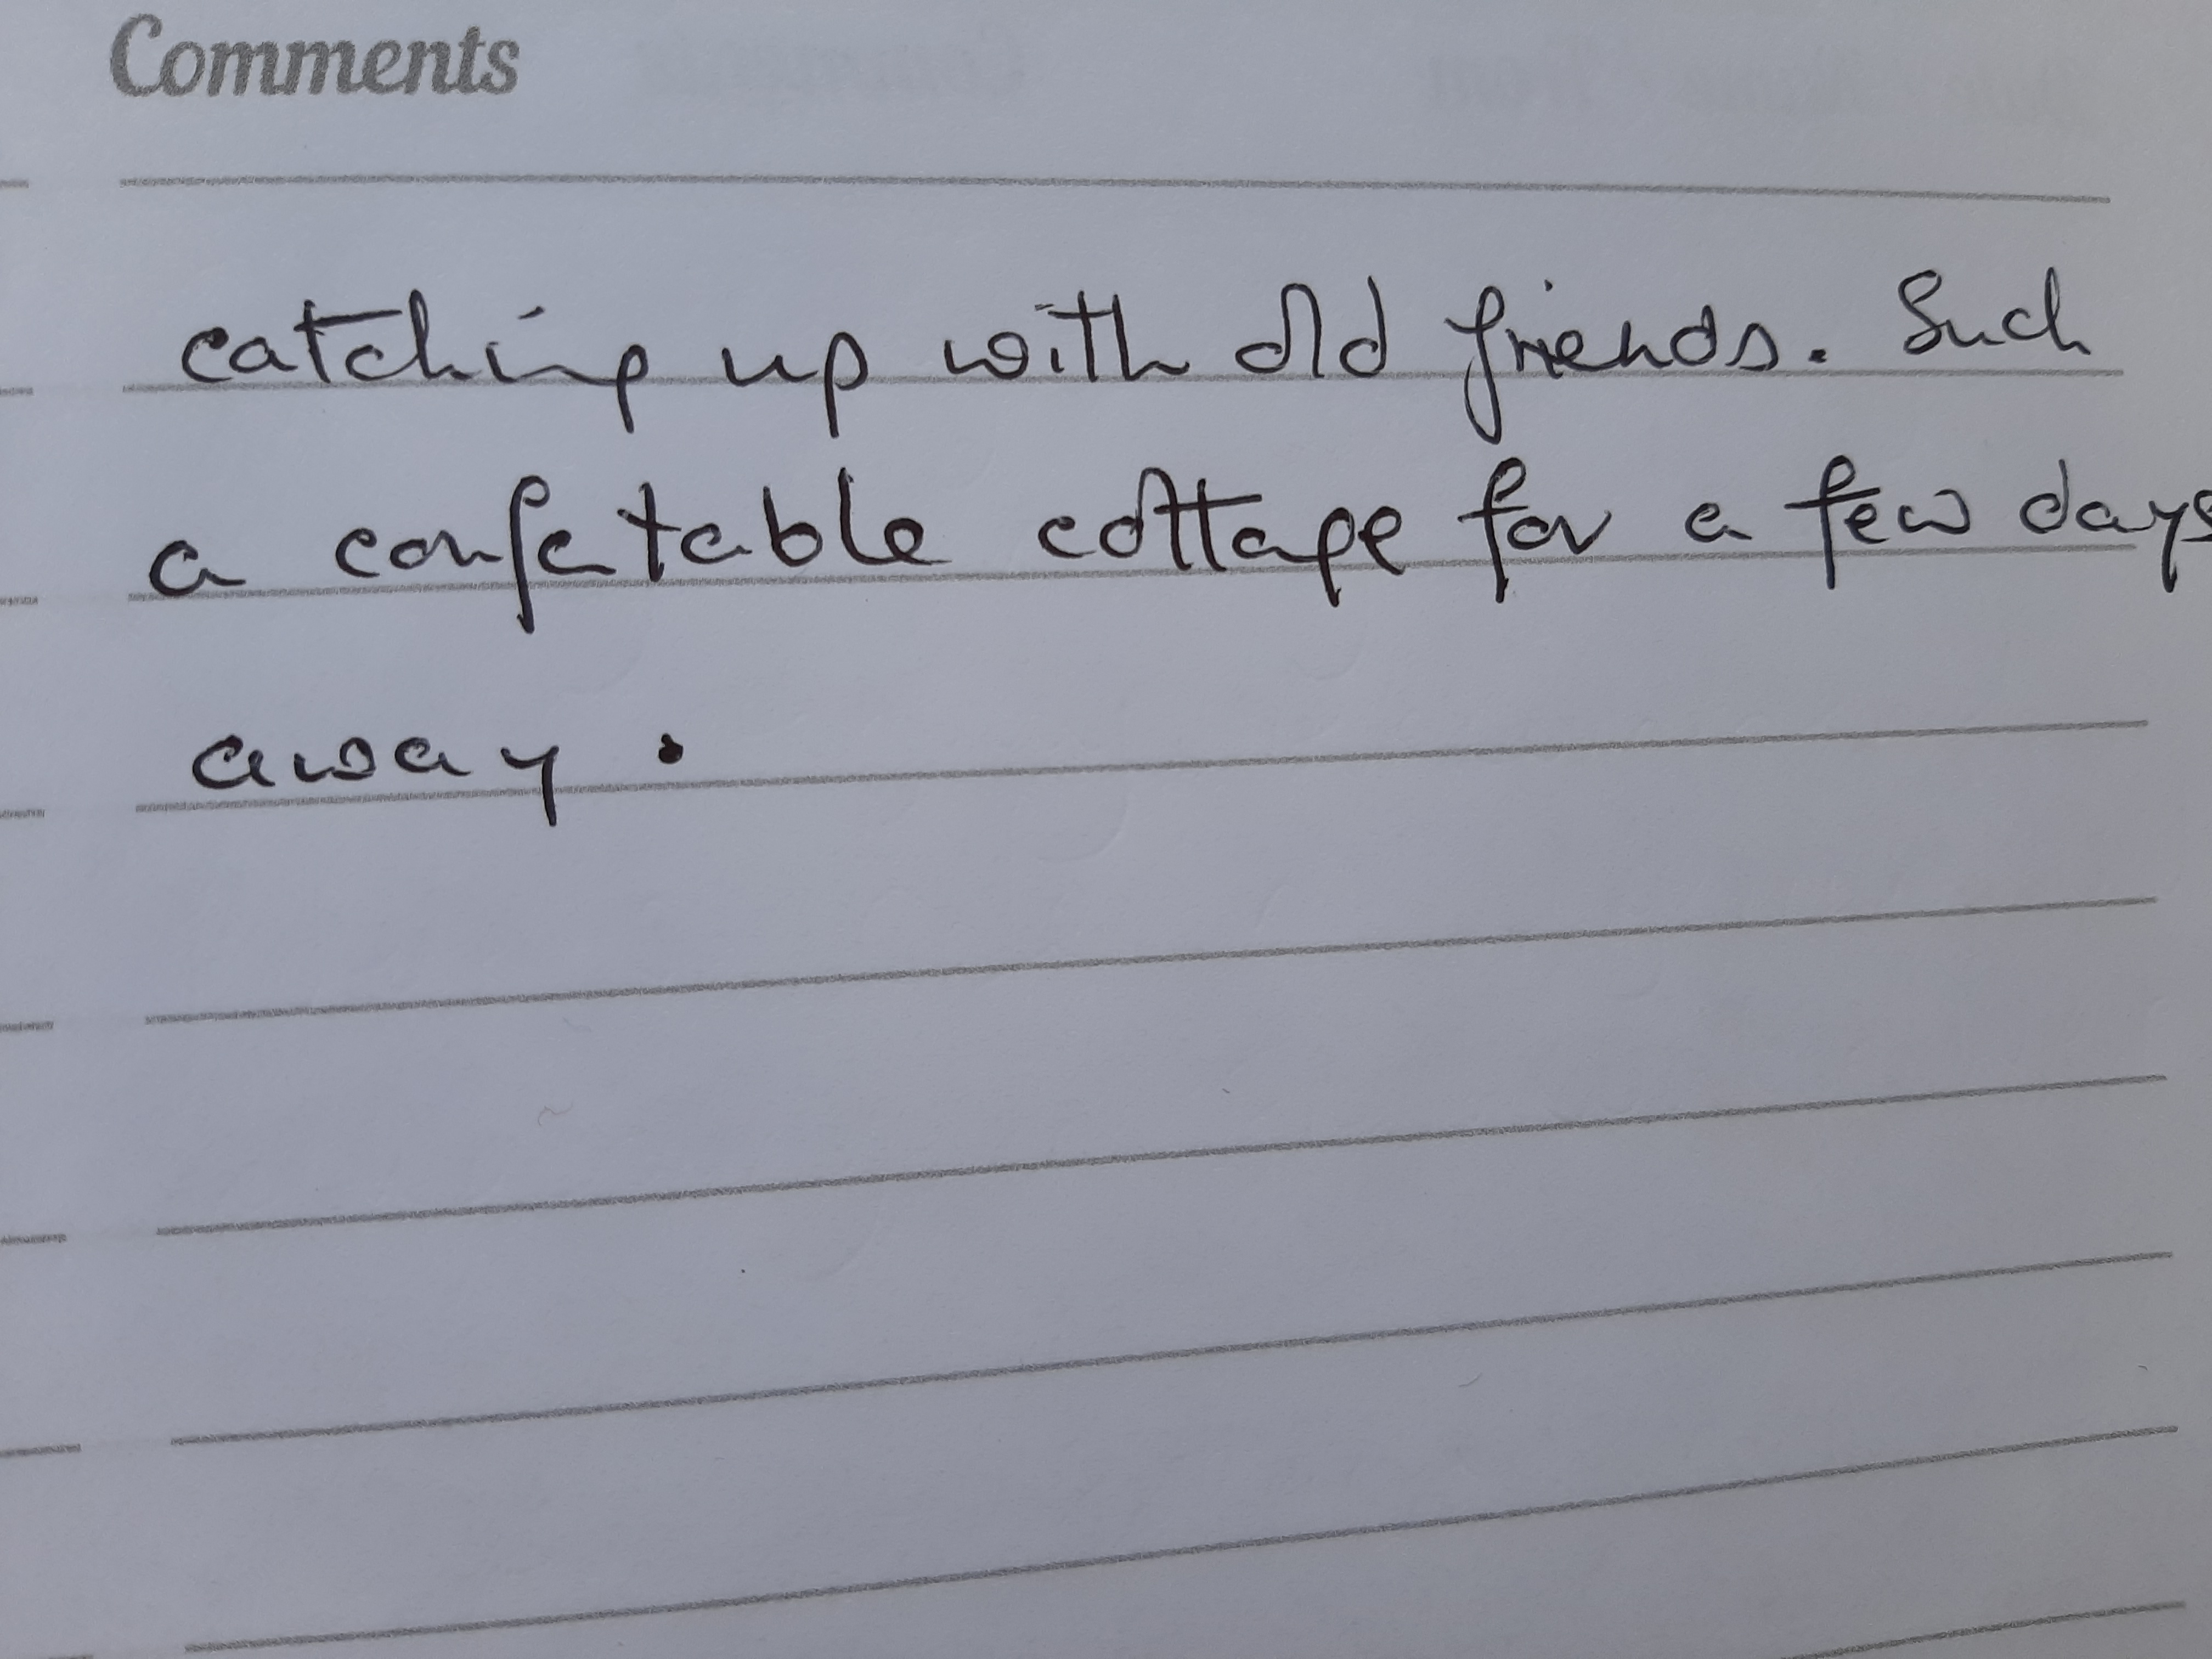 Comments
catching up with old friends. Such
a confatable cottage for a few days
away.